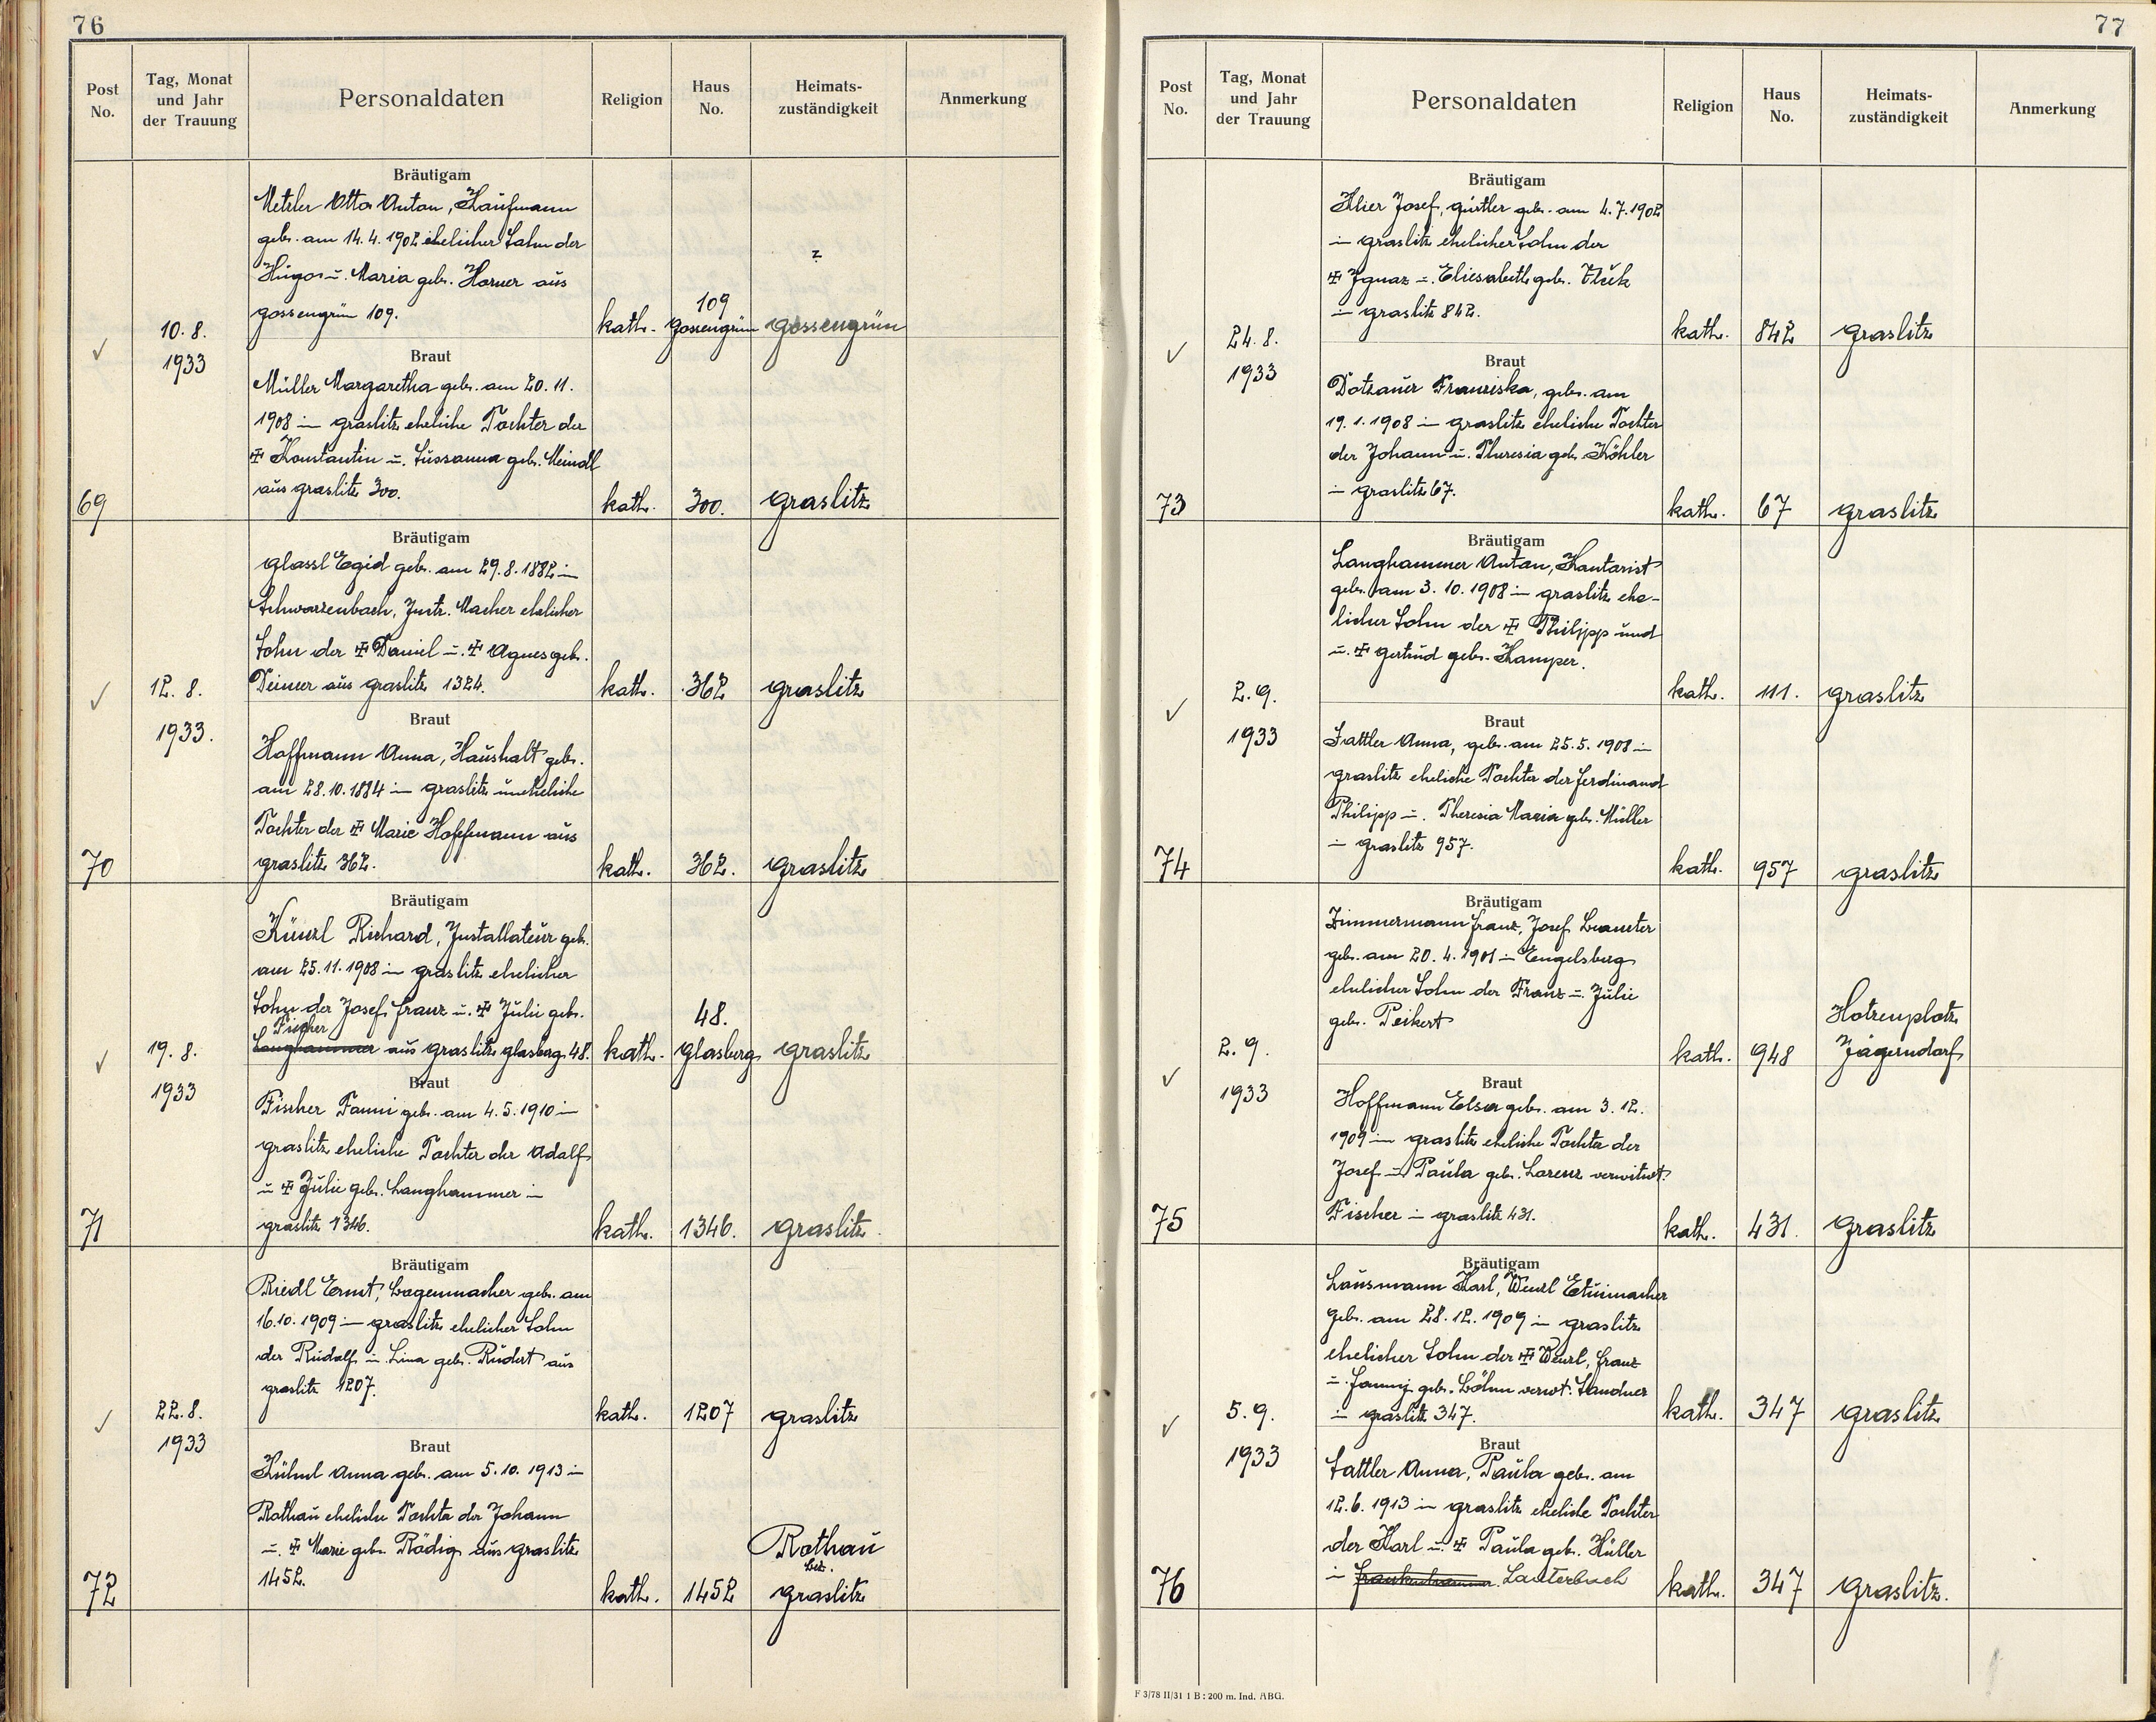 76
Post No.
Tag, Monat und Jahr der Trauung
Personaldaten
Religion
Haus No.
Heimats-zuständigkeit
Anmerkung
Bräutigam
Metzler Otto Anton, Kaufmann
geb. am 14.4.1902 ehelicher Sohn der
Hugo u. Maria geb. Horner aus
Gossengrün 109.
kath. 109 Gossengrün Gossengrün
10.8.
1933
Braut
Müller Margaretha geb. am 20.11.
1908 in Graslitz eheliche Tochter der
✠ Konstantin u. Sussanna geb. Meindl
aus Graslitz 300.
69
kath. 300. Graslitz
Bräutigam
Glassl Egid geb. am 29.8.1882 in
Schwarzenbach, Instr. Macher ehelicher
Sohn der ✠ Daniel u. ✠ Agnes geb.
Deimer aus Graslitz 1324.
kath. 362 Graslitz
12.8.
1933.
Braut
Hoffmann Anna, Haushalt geb.
am 28.10.1884 in Graslitz uneheliche
Tochter der ✠ Marie Hoffmann aus
Graslitz 362.
70
kath. 362. Graslitz
Bräutigam
Künzl Richard, Installateur geb.
am 25.11.1908 in Graslitz ehelicher
Sohn der Josef, Franz u. ✠ Julie geb.
Fischer
Langhammer aus Graslitz Glasberg 48.
kath. 48. Glasberg Graslitz
19.8.
1933
Braut
Fischer Fanni geb. am 4.5.1910 in
Graslitz eheliche Tochter der Adolf
u ✠ Julie geb. Langhammer in
Graslitz 1346.
71
kath. 1346. Graslitz
Bräutigam
Riedl Ernst, Bogenmacher geb. am
16.10.1909 in Graslitz ehelicher Sohn
der Rudolf u. Lina geb. Rudert aus
Graslitz 1207.
kath. 1207 Graslitz
22.8.
1933
Braut
Kühnl Anna geb. am 5.10.1913 in
Rothau eheliche Tochter der Johann
u. ✠ Marie geb. Rödig aus Graslitz
1452.
72
kath. 1452 Rothau
Bez.
Graslitz
77
Post No.
Tag, Monat und Jahr der Trauung
Personaldaten
Religion
Haus No.
Heimats-zuständigkeit
Anmerkung
Bräutigam
Klier Josef, Gürtler geb. am 4.7.1902
in Graslitz ehelicher Sohn der
✠ Ignaz u. Eliesabeth geb. Vlček
in Graslitz 842.
kath. 842 Graslitz
24.8.
1933
Braut
Dotzauer Franziska, geb. am
19.1.1908 in Graslitz eheliche Tochter
der Johann u. Theresia geb. Köhler
in Graslitz 67.
73
kath. 67 Graslitz
Bräutigam
Langhammer Anton, Kantorist
geb. am 3.10.1908 in Graslitz ehe-
licher Sohn der ✠ Philipp und
u. ✠ Gertrud geb. Kamper.
kath. 111. Graslitz
2.9.
1933
Braut
Sattler Anna, geb. am 25.5.1908 in
Graslitz eheliche Tochter der Ferdinand
Philipp u. Theresia Maria geb. Müller
in Graslitz 957.
74
kath. 957 Graslitz
Bräutigam
Zimmermann Franz, Josef Beamter
geb. am 20.4.1901 in Engelsberg
ehelicher Sohn der Franz u. Julie
geb. Peikert
kath. 948 Hotzenplotz
Jägerndorf
2.9.
1933
Braut
Hoffmann Elsa geb. am 3.12.
1909 in Graslitz eheliche Tochter der
Josef u Paula geb. Lorenz verwitwt.
Fischer in Graslitz 431.
75
kath. 431. Graslitz
Bräutigam
Lausmann Karl, Wenzl Etuimacher
geb. am 28.12.1909 in Graslitz
ehelicher Sohn der ✠ Wenzl, Franz
u. Fanny geb. Böhm verwt. Sandner
in Graslitz 347.
kath. 347 Graslitz
5.9.
1933
Braut
Sattler Anna, Paula geb. am
12.6.1913 in Graslitz eheliche Tochter
der Karl u. ✠ Paula geb. Hüller
in Frankenhammer Lauterbach
76
kath. 347 Graslitz.
F 3/78 II/31 1 B : 200 m. Ind. ABG.